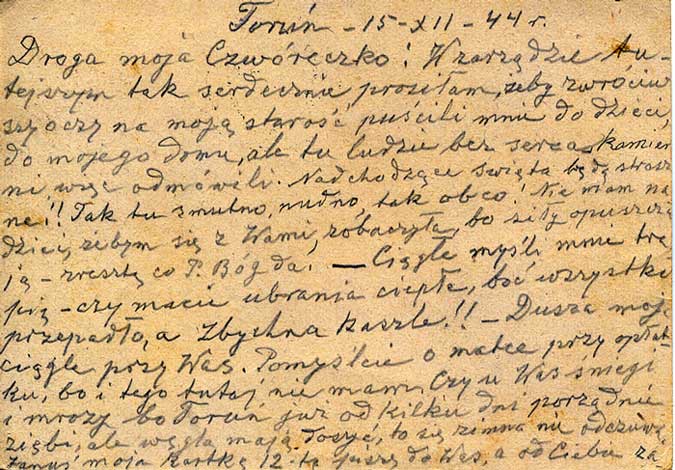 Toruń - 15-XII-44 r.
Droga moja Czwóreczko! W zarządzie tu-
tejszym tak serdecznie prosiłam, żeby zwróciw
szy oczy na moją starość puścili mnie do dzieci,
do mojego domu, ale tu ludzie bez serca, kamien
ni więc odmówili. Nadchodzące święta będą strasz
ne!! Tak tu smutno, nudno, tak obco! Nie mam na
dziei, żebym się z Wami, zobaczyła, bo siły opuszcza
ją - zresztą co P. Bóg da. — Ciągle myśli mnie tra
pią - czy macie ubrania ciepłe, boć wszystko
przepadło, a Zbychna kaszle!! - Dusza moja
ciągle przy Was. Pomyślcie o matce przy opłat-
ku, bo i tego tutaj nie mam. Czy u Was śniegi
i mrozy bo Toruń już od kilku dni porządnie
ziębi, ale węgla mają dosyć, to się zimna nie odczuwa
moja kartkę 12-tą piszę do Was, a od Ciebie za